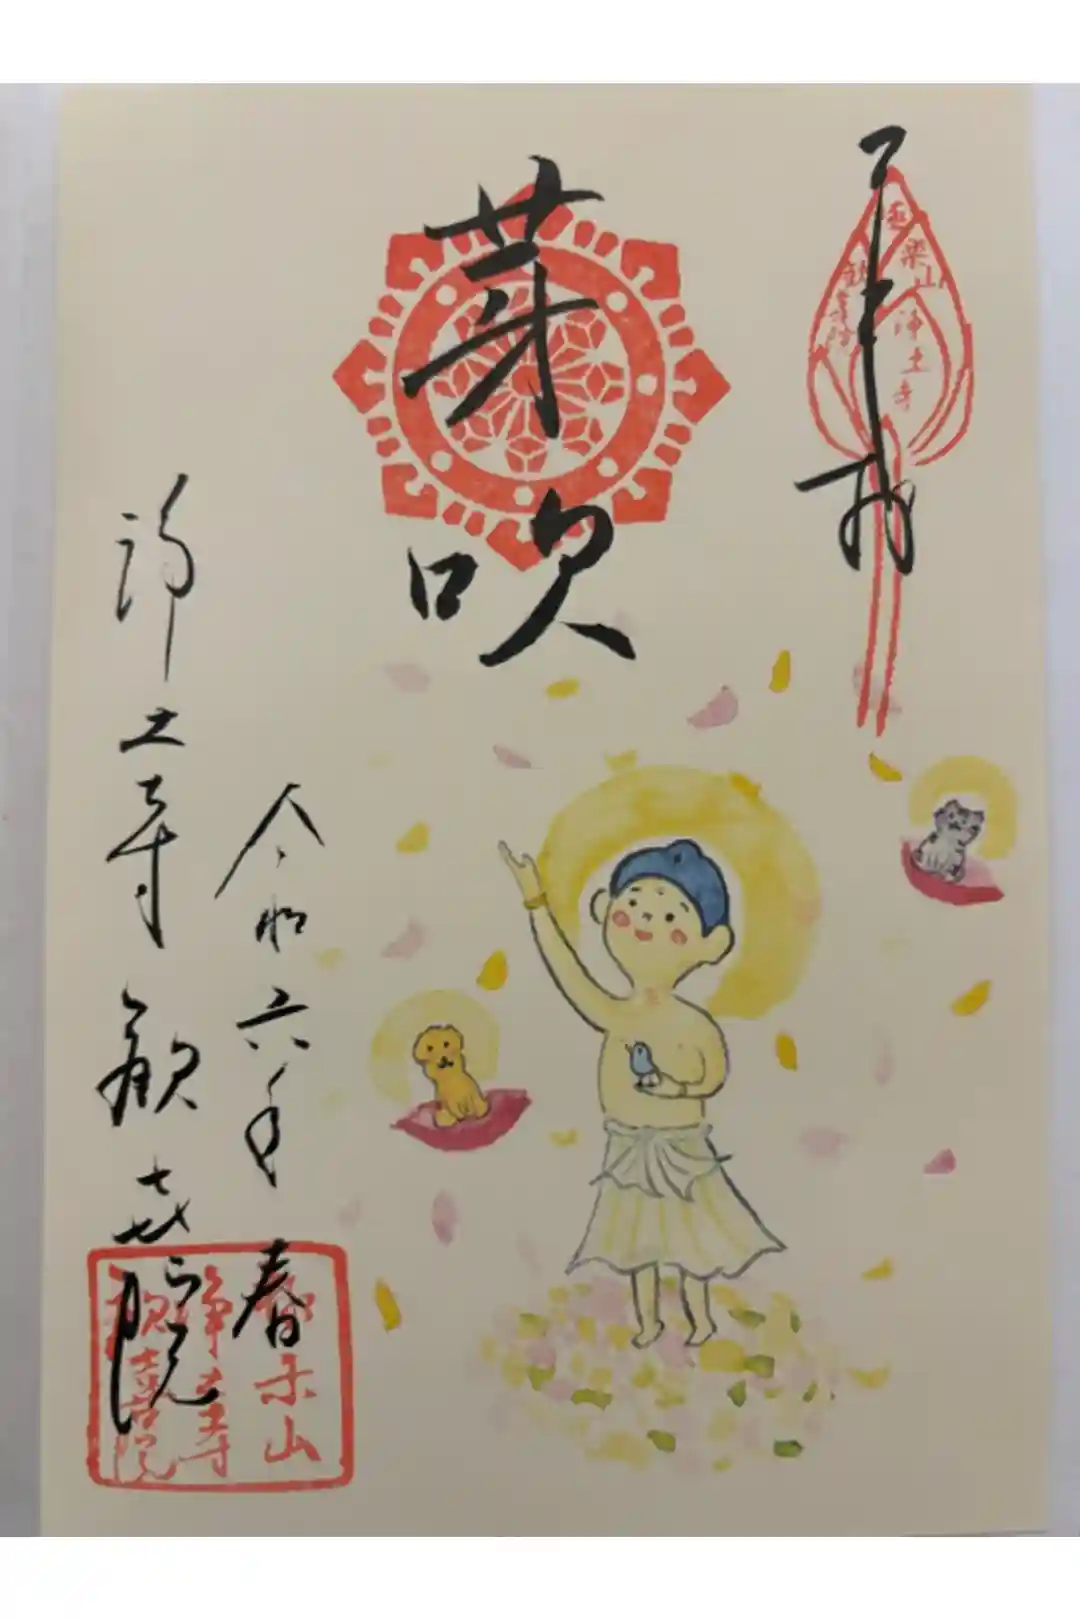 奉拝
極楽山
浄土寺
歓喜院
芽吹
令和六年 春
浄土寺 歓喜院
極楽山
浄土寺
歓喜院